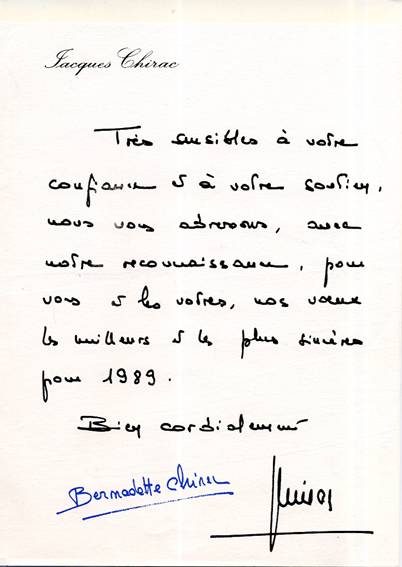 Jacques Chirac
Très sensibles à votre
confiance et à votre soutien,
nous vous adressons, avec
notre reconnaissance, pour
vous et les vôtres, nos vœux
les meilleurs et les plus sincères
pour 1989.
Bien cordialement
Bernadette Chirac